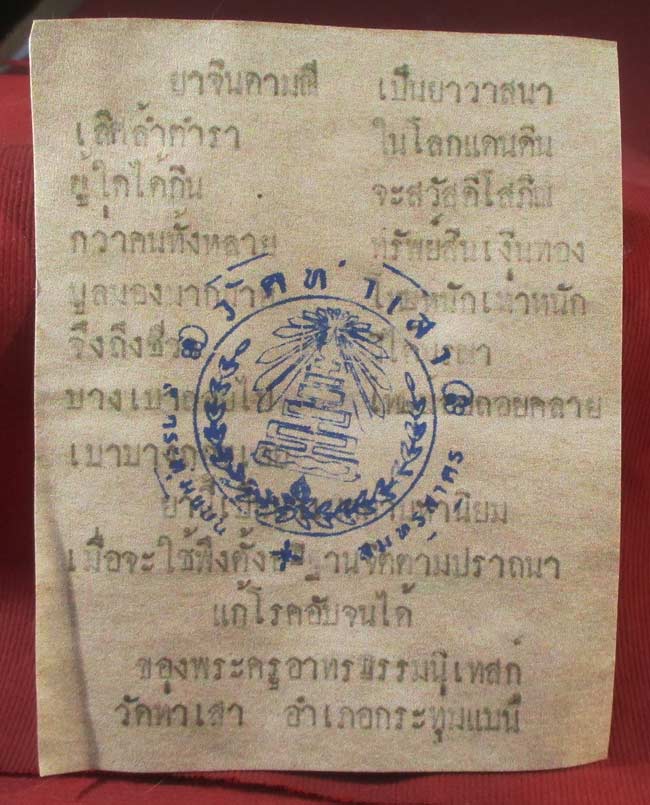 ยาจินดามณี เป็นยาวาสนา
เลิศล้ำตำรา ในโลกแดนดิน
ผู้ใดได้กิน จะสวัสดีโสภิณ
กว่าคนทั้งหลาย ทรัพย์สินเงินทอง
พูลนองมากมาย
จึงถึง
บางเบา ลอยคลาย
เบาบาง
นิยม
เมื่อจะใช้พึงตั้ง จิตตามปราถนา
แก้โรคอับจนได้
ของพระครูอาทรธรรมนิเทสก์
วัดท่าเสา อำเภอกระทุ่มแบน
วัดท่าเสา
อ.กระทุ่มแบน
สมุทรสาคร